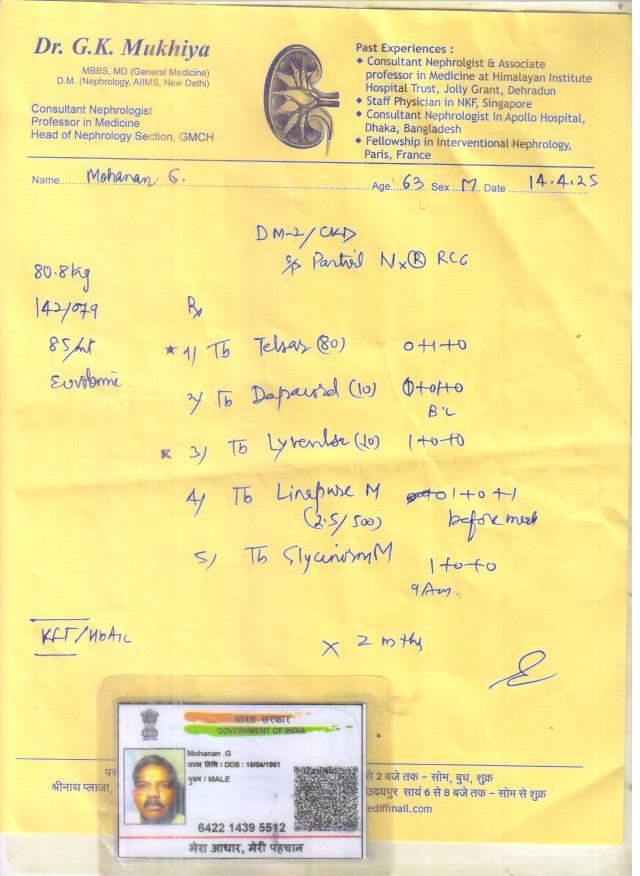 Dr. G.K. Mukhiya
MBBS, MD (General Medicine)
D.M. (Nephrology, AIIMS, New Delhi)
Consultant Nephrologist
Professor in Medicine
Head of Nephrology Section, GMCH
Past Experiences :
Consultant Nephrolgist & Associate
professor in Medicine at Himalayan Institute
Hospital Trust, Jolly Grant, Dehradun
Staff Physician in NKF, Singapore
Consultant Nephrologist in Apollo Hospital,
Dhaka, Bangladesh
Fellowship in interventional Nephrology,
Paris, France
Name Mohanan G. Age 63 Sex M Date 14.4.25
DM-2/CKD
S/p Partial Nx (R) RCC
80.8kg
142/079
85/mt
Rx
1) Tb Telsar (80) 0+1+0
2) Tb (10)
3) Tb 1+0+0
4) Tb M 1+0+1
(2.5/500) before meal
5) Tb 1+0+0
9 Am.
KFT/HbA1c
x 2 mths
भारत सरकार
GOVERNMENT OF INDIA
Mohanan .G
जन्म तिथि / DOB : 16/04/1961
पुरुष / MALE
6422 1439 5512
मेरा आधार, मेरी पहचान
श्रीनाथ प्लाजा,
से 2 बजे तक - सोम, बुध, शुक्र
उदयपुर सायं 6 से 8 बजे तक - सोम से शुक्र
ediffmail.com